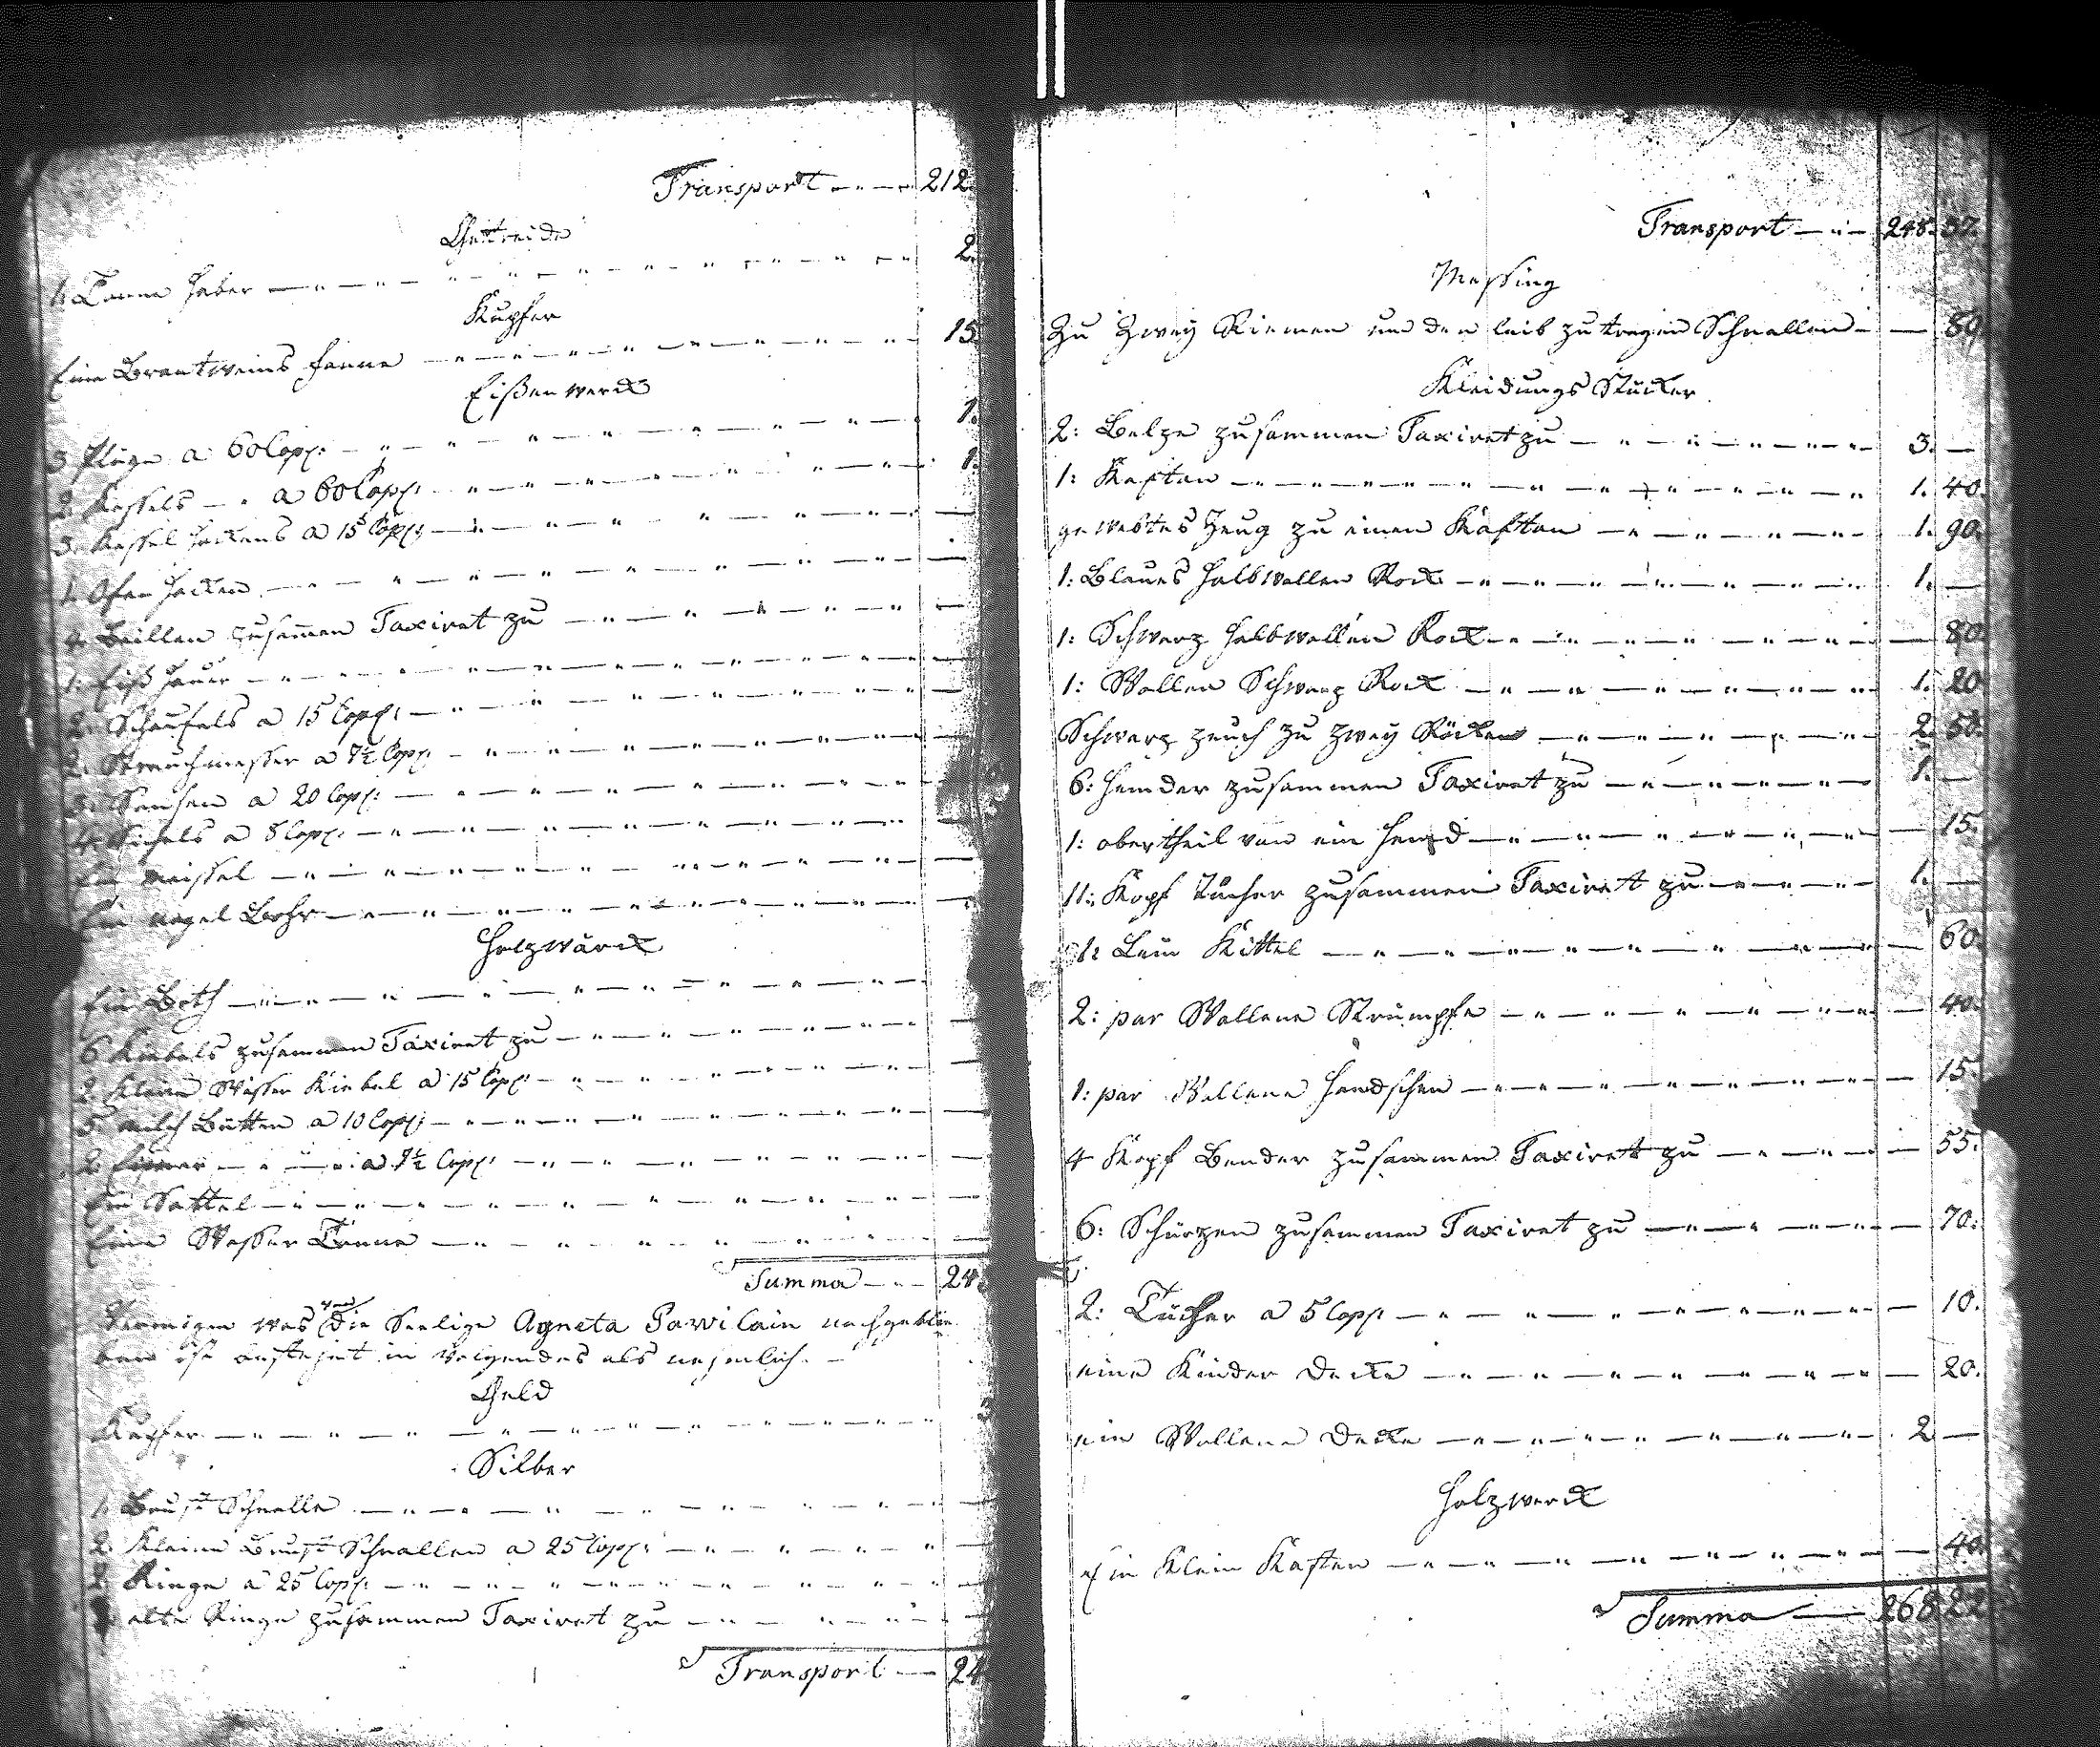 Transport 212.
Gettreide
1. Tonne Haber 2.
Kupfer
Eine Brantweins Panne 15.
Eißen werck
3 Plüge a 60 Cop: 1.
2. Kessels a 60 Cop: 1.
3. Kessel Hackens a 15 Cop:
1. Ofen Hacken
4. Beillen zusammen Taxiret zu
1. Eiß Hauer
2. Schaufels a 15 Cop:
2. Strauchmesser a 7½ Cop:
3. Sensen a 20 Cop:
4. Sichels a 8 Cop:
Ein meissel
Ein nagel Bohr
Holzwärck
Ein Both
6 Kiebels zusammen Taxiret zu
2. Kleine Wasser Kiebel a 15 Cop:
5. milch Bütten a 10 Cop:
2. Eimer a 7½ Cop:
Ein Sattel
Eine Wasser Tonne
Summa 24
Vermögen was die Seelige Agneta Pawilain nachgeblie
ben ist bestehet in Volgendes als nehmlich.
Geld
Kupfer
Silber
1. Brust Schnalle
2. Kleine Brust Schnallen a 25 Cop:
2. Ringe a 25 Cop:
alte Ringe zusammen Taxiret zu
Transport 24
Transport 248. 37.
Messing
Zu Zwey Riemen um den leib zu tragen Schnallen 80
Kleidungs Stücker
2: Belze zusammen Taxiret zu 3. —
1: Kaftan 1. 40.
gewebtes Zeug zu einen Kaftan 1. 90.
1: Blaues halbwollen Rock 1. —
1: Schwarz halbwollen Rock — 80.
1: Wollen Schwarz Rock 1. 20
Schwarz zeuch zu Zwey Röcken 2. 50.
6: Hemder zusammen Taxiret zu 1. —
1: obertheil von ein Hemd — 15.
11: Kopf Tücher zusammen Taxiret zu 1. —
1: Lein Kittel — 60.
2: par Wollene Strümpfe — 40.
1: par Wollene Handschen — 15.
4 Kopf Bender zusammen Taxiret zu — 55.
6: Schürzen zusammen Taxiret zu — 70.
2: Tücher a 5 Cop: — 10.
eine Kinder Decke — 20.
ein Wollene Decke 2 —
Holzwerck
Ein Klein Kasten — 40.
Summa 268. 22